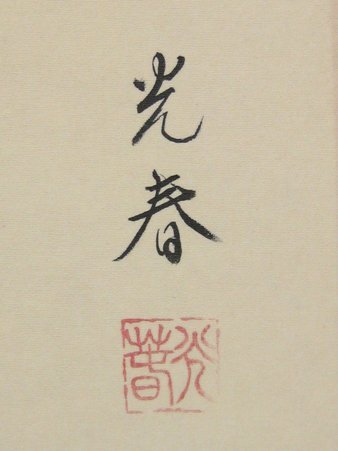 光春
光春